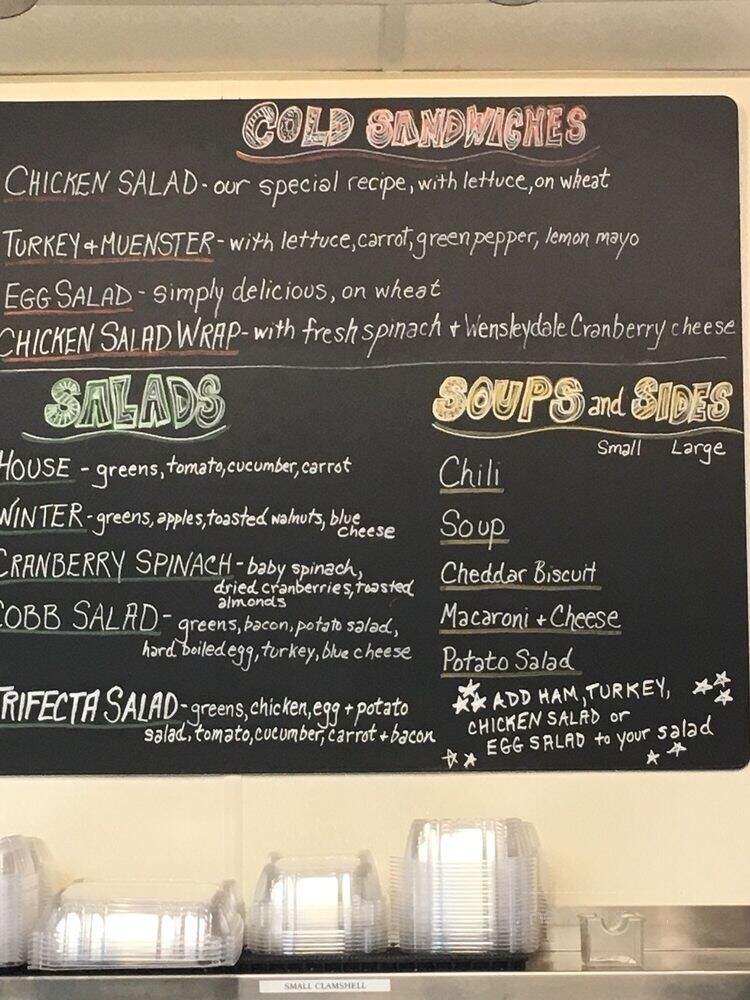 COLD SANDWICHES
CHICKEN SALAD - our special recipe, with lettuce, on wheat
TURKEY + MUENSTER - with lettuce, carrot, green pepper, lemon mayo
EGG SALAD - simply delicious, on wheat
CHICKEN SALAD WRAP - with fresh spinach + Wensleydale Cranberry cheese
SALADS
HOUSE - greens, tomato, cucumber, carrot
WINTER - greens, apples, toasted walnuts, blue
cheese
CRANBERRY SPINACH - baby spinach,
dried cranberries, toasted
almonds
COBB SALAD - greens, bacon, potato salad,
hard boiled egg, turkey, blue cheese
TRIFECTA SALAD - greens, chicken, egg + potato
salad, tomato, cucumber, carrot + bacon
SOUPS and SIDES
Small Large
Chili
Soup
Cheddar Biscuit
Macaroni + Cheese
Potato Salad
ADD HAM, TURKEY,
CHICKEN SALAD or
EGG SALAD to your salad
SMALL CLAMSHELL